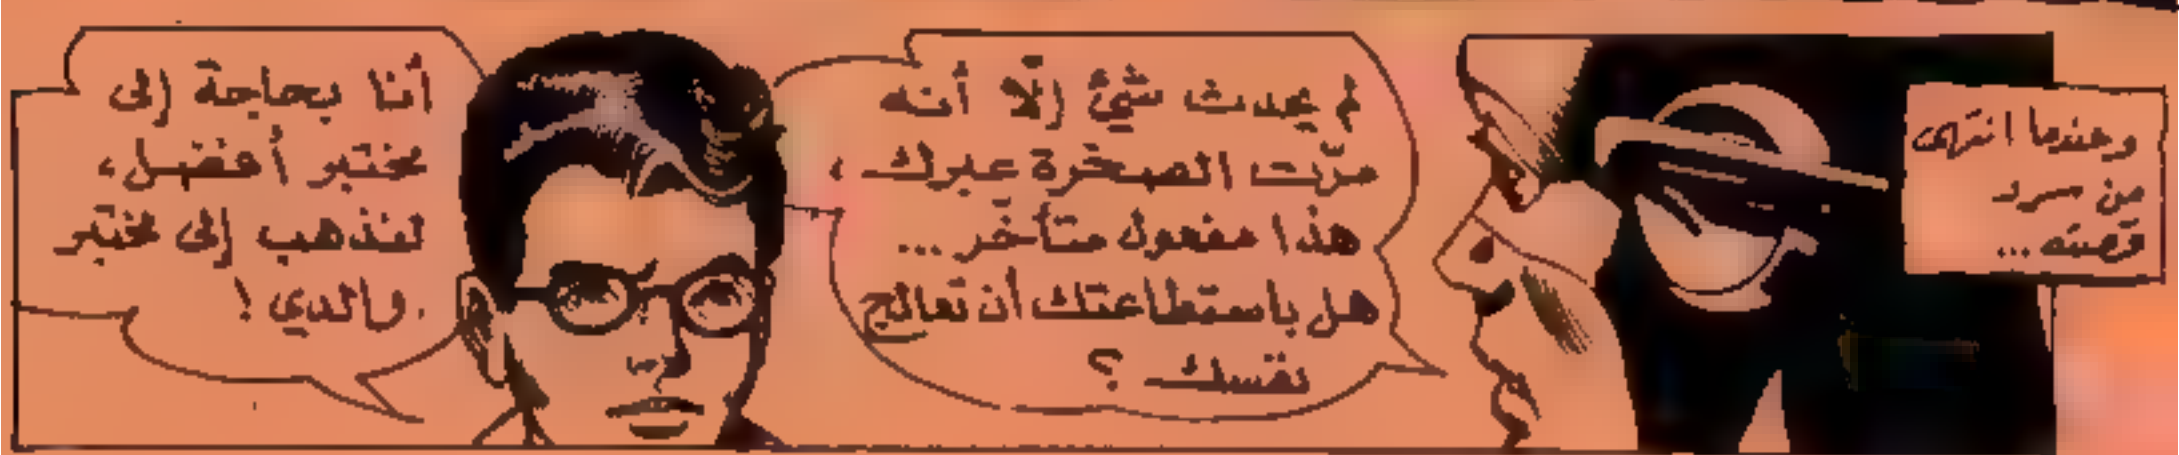 وعندما انتهى
من سرد
قصته ...
لم يحدث شئ إلّا أنه
مرّت الصخرة عبرك ،
هذا مفعول متأخّر ...
هل باستطاعتك أن تعالج
نفسك ؟
أنا بحاجة إلى
مختبر أفضل ،
لنذهب إلى مختبر
والدي !